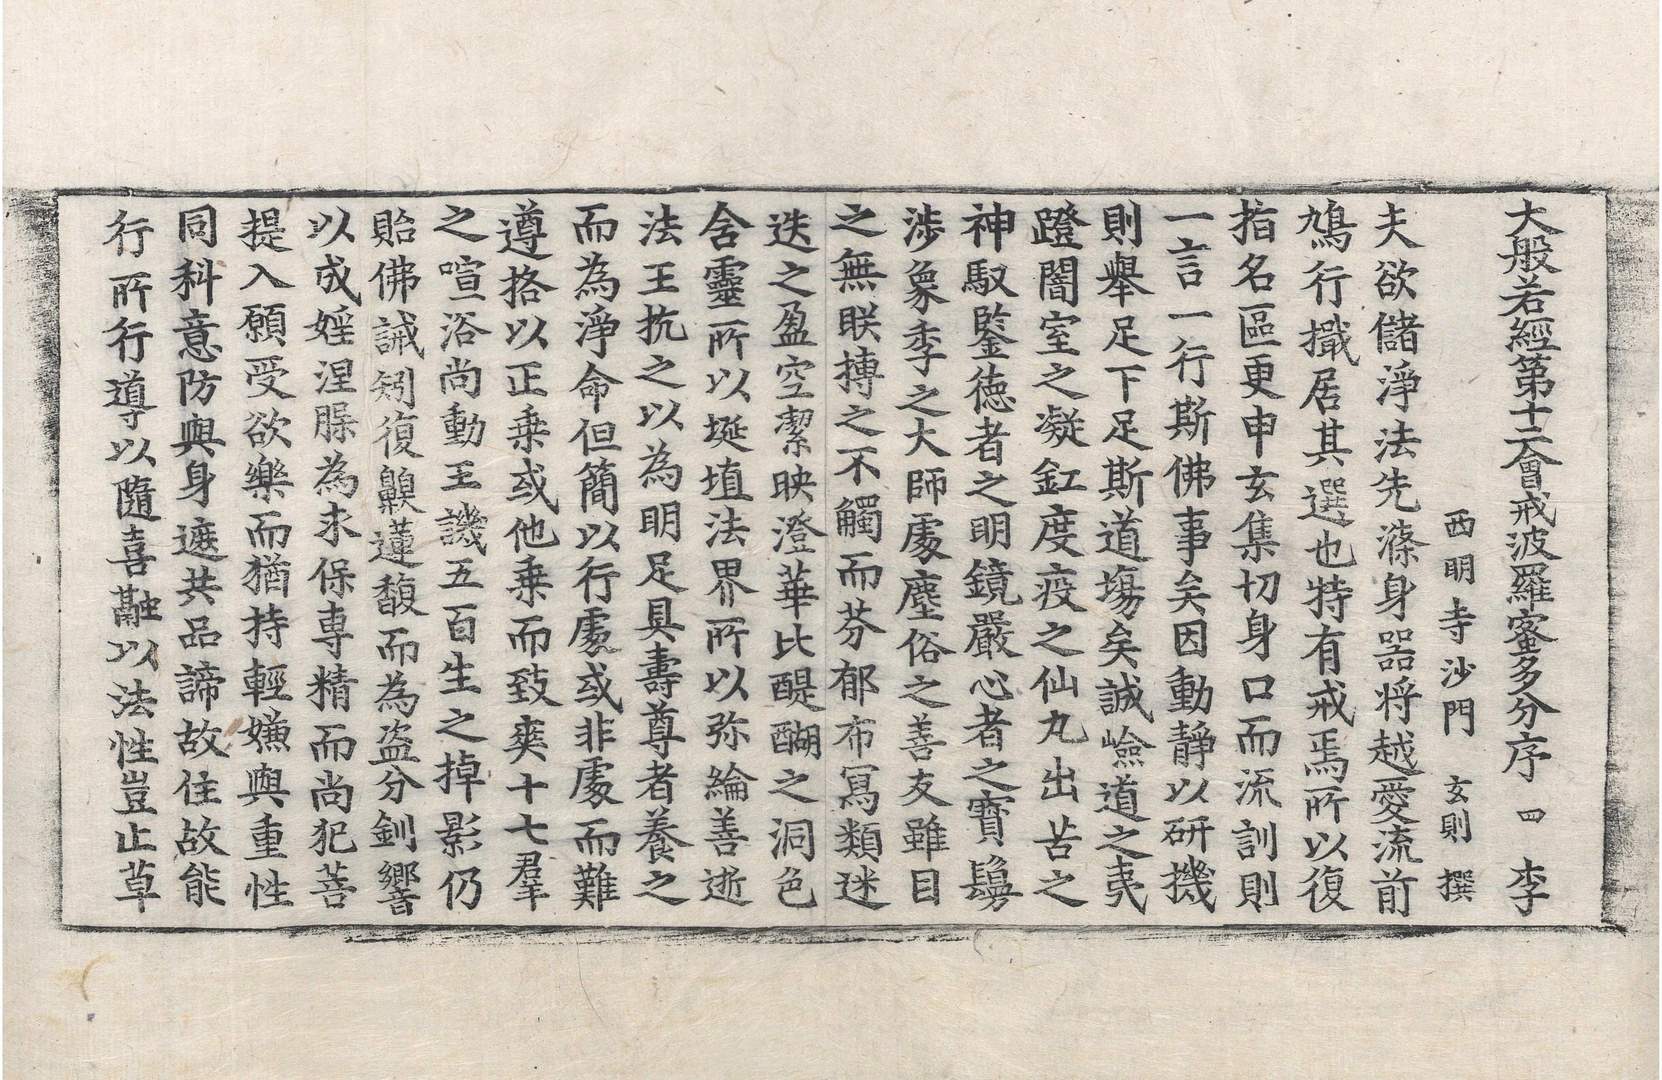 大般若經第十二會戒波羅蜜多分序 四 李
西明寺沙門 玄則 撰
夫欲儲淨法先滌身器將越愛流前
鳩行檝居其選也特有戒焉所以復
指名區更申玄集切身口而流訓則
一言一行斯佛事矣因動靜以研機
則舉足下足斯道場矣誠嶮道之夷
蹬闇室之凝釭度疫之仙丸出苦之
神馭鋻德者之明鏡嚴心者之寶鬘
涉象季之大師處塵俗之善友雖目
之無眹搏之不觸而芬郁布冩類迷
迭之盈空潔映澄華比醍醐之洞色
含靈所以埏埴法界所以弥綸善逝
法王抗之以為明足具壽尊者養之
而為淨命但簡以行處或非處而難
遵格以正乗或他乗而致爽十七羣
之喧浴尚動王譏五百生之掉影仍
貽佛誡矧復齅蓮馥而為盗分釧響
以成婬涅脲為求保專精而尚犯菩
提入願受欲樂而猶持輕嫌與重性
同科意防與身遮共品諦故住故能
行所行導以隨喜融以法性豈止草